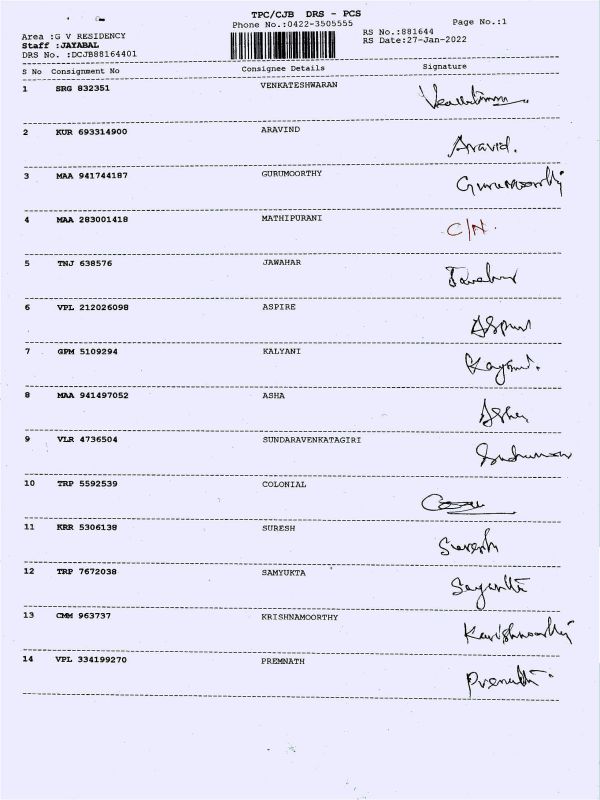 TPC/CJB DRS - PCS
Phone No.:0422-3505555 Page No.:1
Area :G V RESIDENCY RS No.:881644
Staff :JAYABAL RS Date:27-Jan-2022
DRS No. :DCJB88164401
S No Consignment No Consignee Details Signature
1 SRG 832351 VENKATESHWARAN
2 KUR 693314900 ARAVIND Aravid.
3 MAA 941744187 GURUMOORTHY Gurumoorthy
4 MAA 283001418 MATHIPURANI C/N.
5 TNJ 638576 JAWAHAR
6 VPL 212026098 ASPIRE
7 GPM 5109294 KALYANI
8 MAA 941497052 ASHA
9 VLR 4736504 SUNDARAVENKATAGIRI
10 TRP 5592539 COLONIAL
11 KRR 5306138 SURESH Suresh
12 TRP 7672038 SAMYUKTA
13 CMM 963737 KRISHNAMOORTHY
14 VPL 334199270 PREMNATH